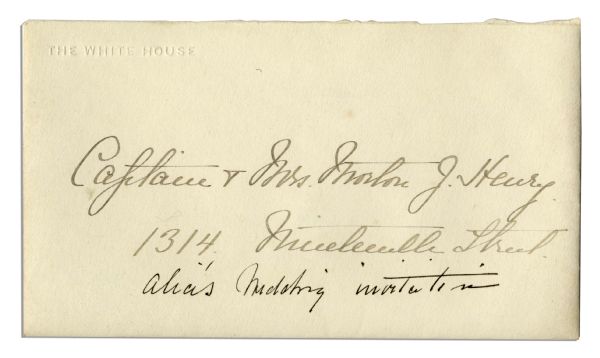 THE WHITE HOUSE
Captain & Mrs. Morton J. Henry.
1314 Nineteenth Street.
Alice's Wedding invitation